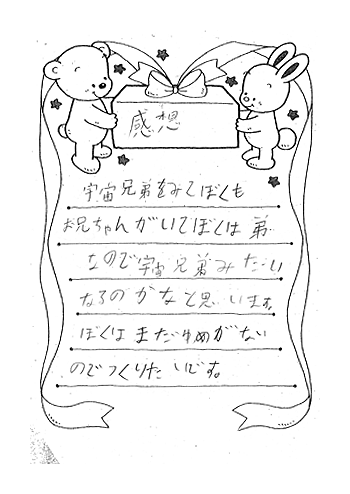 感想
宇宙兄弟をみてぼくも
お兄ちゃんがいてぼくは弟
なので宇宙兄弟みたい
なるのかなと思います。
ぼくはまだゆめがない
のでつくりたいです。